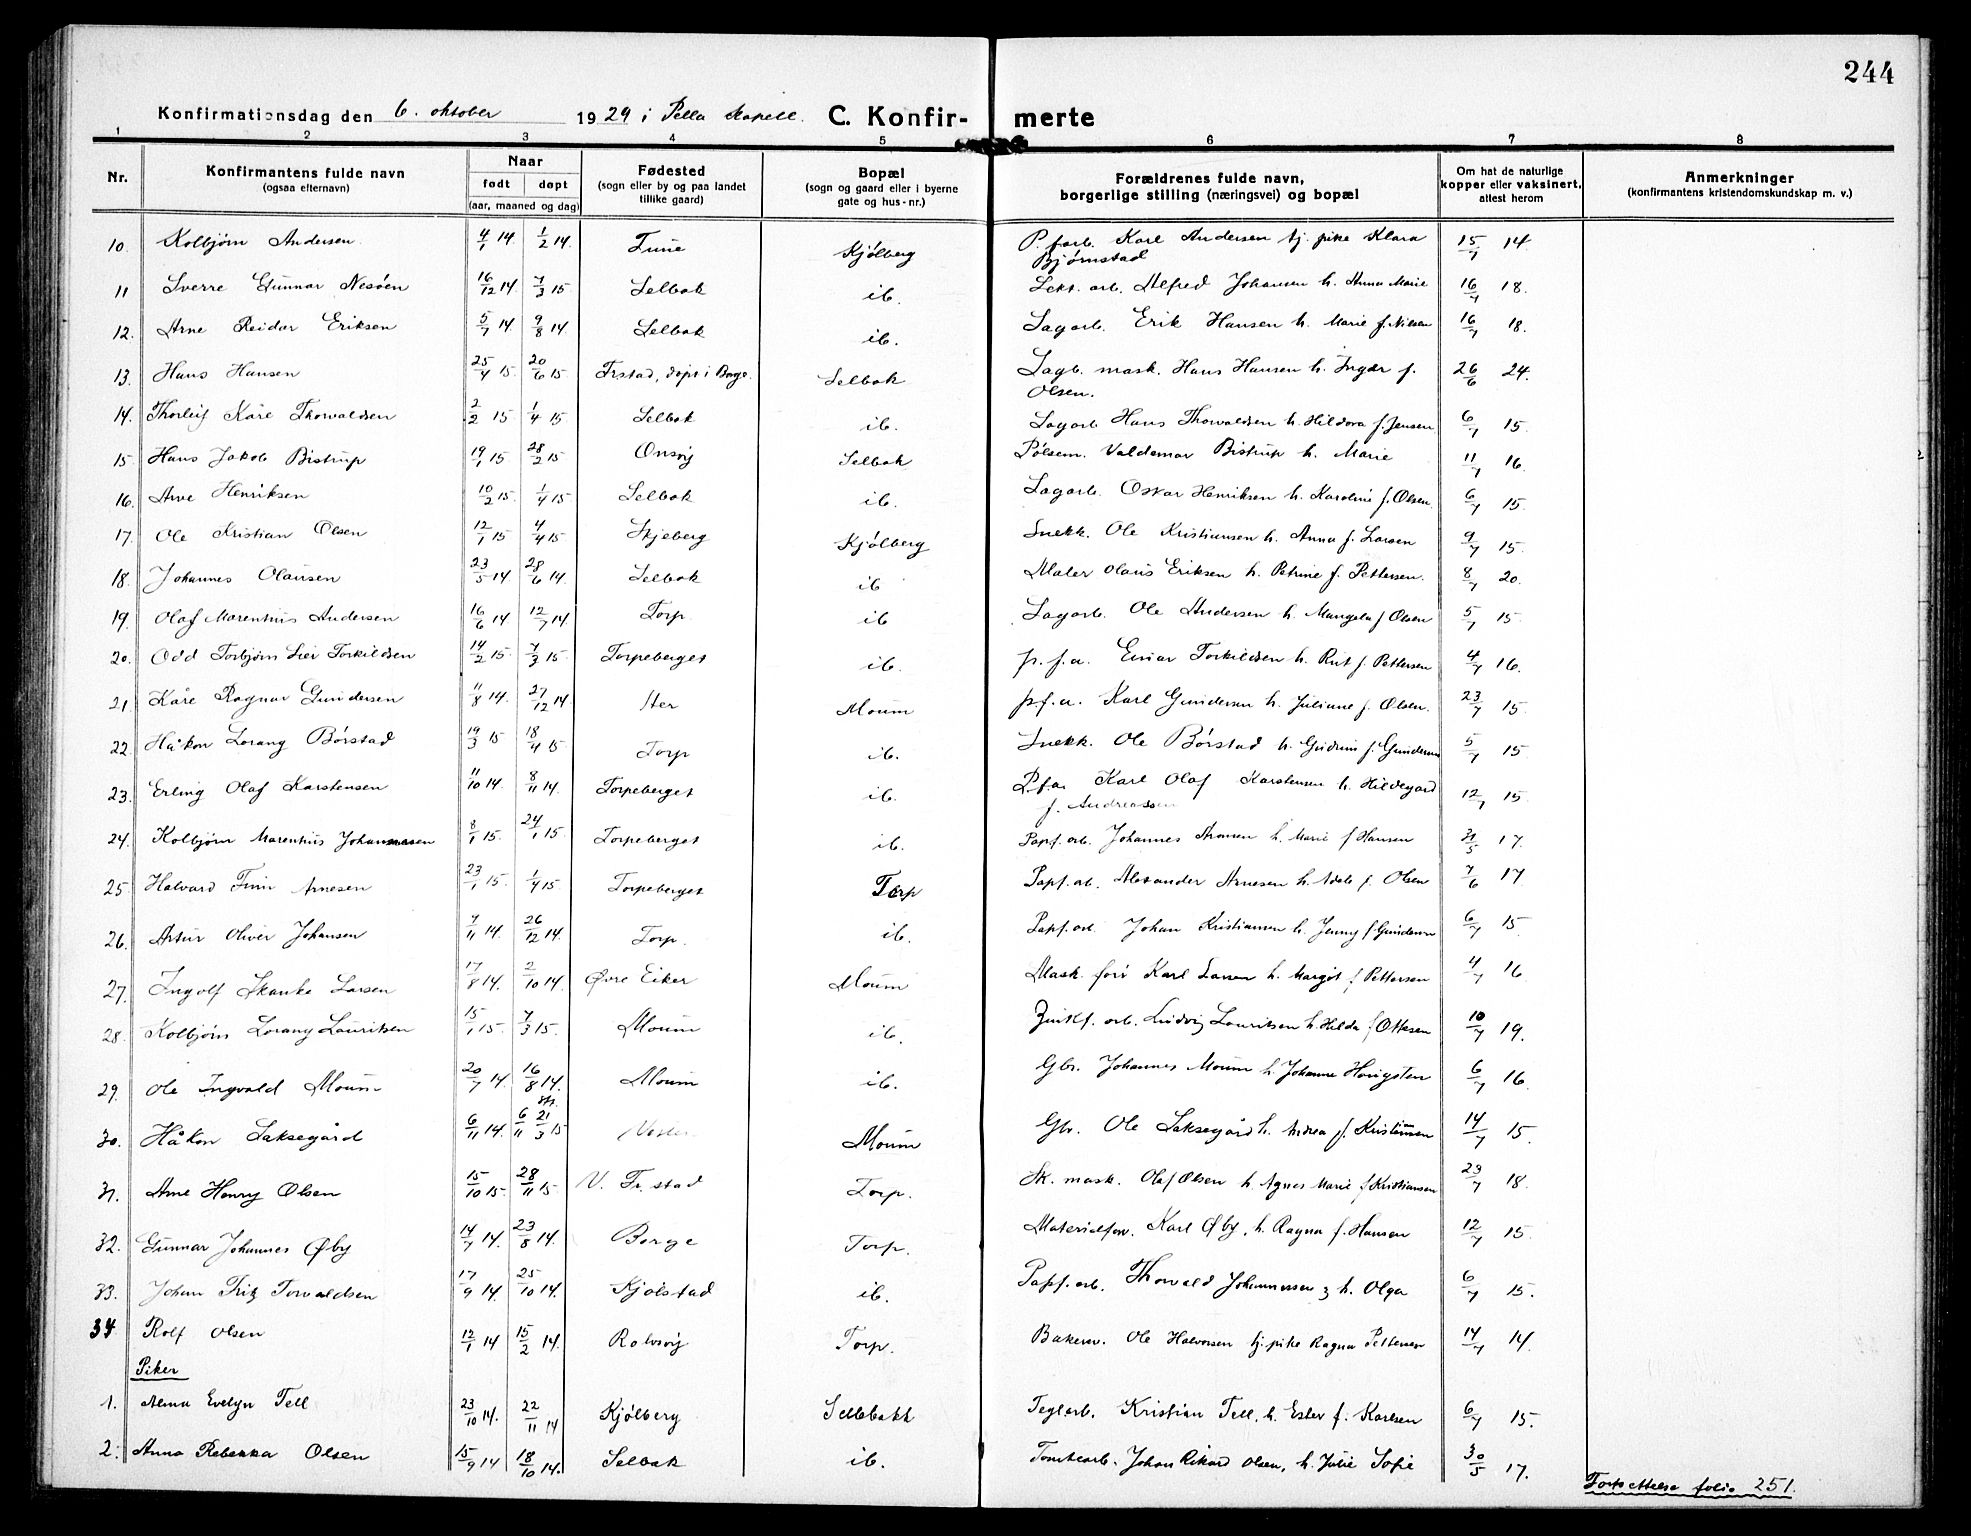 244
Konfirmationsdag den 6. oktober 1929 i Pella kapell. C. Konfir- merte
1 2 3 4 5 6 7 8
Nr. Konfirmantens fulde navn (ogsaa efternavn) Naar født døpt (aar, maaned og dag) Fødested (sogn eller by og paa landet tillike gaard) Bopæl (sogn og gaard eller i byerne gate og hus-nr.) Forældrenes fulde navn, borgerlige stilling (næringsvei) og bopæl Om hat de naturlige kopper eller vaksinert, attest herom Anmerkninger (konfirmantens kristendomskundskap m. v.)
10. Kolbjørn Andersen 4/1 14. 1/2 14. Tune Kjølberg P. farb. Karl Andersen tj. pike Klara Bjørnstad 15/7 14
11 Sverre Gunnar Nesøen 16/12 14. 7/3 15 Selbak ib. Sekt. arb. Alfred Johansen h. Anna Marie 16/7 18.
12. Arne Reidar Eriksen 5/7 14 9/8 14 Selbak ib. Sagarb. Erik Hansen h. Marie f. Nilsen 16/7 18.
13. Hans Hansen 25/4 15. 20/6 15 Frstad, døpt i Borge. Selbak Sagb. mask. Hans Hansen h. Inger f. Olsen. 26/6 24.
14. Thorleif Kåre Thorvaldsen 2/2 15 1/4 15 Selbak ib. Sagarb Hans Thorvaldsen h. Hildora f. Jensen 6/7 15.
15 Hans Jakob Bistrup 19/1 15. 28/2 15 Onsøy Selbak Pølsem. Valdemar Bistrup h. Marie 11/7 16.
16. Arve Henriksen 10/2 15. 1/4 15 Selbak ib. Sagarb. Oskar Henriksen h. Karoline f. Olsen 6/7 15.
17. Ole Kristian Olsen 12/1 15 4/4 15 Skjeberg Kjølberg Snekk. Ole Kristiansen h. Anna f. Larsen 9/7 15.
18. Johannes Olausen 23/5 14 28/6 14. Selbak ib Maler Olaus Eriksen h. Petrine f. Pettersen. 8/7 20.
19. Olaf Marentius Andersen 16/6 14 12/7 14. Torp ib Sagarb. Ole Andersen h. f Olsen 5/7 15.
20. Odd Torbjørn Lier Torkildsen 14/2 15. 7/3 15. Torpeberget ib. p. f. a. Einar Torkildsen h. Rut f. Pettersen 4/7 16.
21. Kåre Ragnar Gundersen 11/8 14. 27/12 14 Her Moum p.f.a. Karl Gundersen h. Juliane f. Olsen. 23/7 15.
22. Håkon Lorang Børstad 19/3 15 18/4 15 Torp ib. Snekk. Ole Børstad h. Gudrun f. Gundersen 5/7 15.
23. Erling Olaf Karstensen 11/10 14 8/11 14. Torpeberget ib. P.f.a. Karl Olaf Karstensen h. Hildegard f. Andreassen 12/7 15.
24. Kolbjørn Marentius Johannesen 8/1 15. 24/1 15. Torpeberget ib. Papf. arb. Johannes h. Marie f Hansen 31/5 17.
25. Halvard Finn Arnesen 23/1 15. 1/4 15. Torpeberget Torp Papf. ab. Alexander Arnesen h. Adele f. Olsen 7/6 17
26. Artur Oliver Johansen 7/11 14. 26/12 14. Torp. ib. Papf. arb. Johan Kristiansen h. Jenny f Gundersen 6/7 15.
27. Ingolf Skanke Larsen 17/8 14. 2/10 14. Øvre Eiker Moum Mask. før Karl Larsen h. Margit f Pettersen 4/7 16
28. Kolbjørn Lorang Lauritsen 15/1 15. 7/3 15. Moum ib. Zinkf. arb. Ludvig Lauritsen h. Hilda f Ottesen 10/7 19.
29. Ole Ingvald Moum 20/7 14. 16/8 14. Moum ib. Gbr. Johannes Moum h. Johanne Haugsten 6/7 16.
30. Håkon Laksegård 6/11 14. 6/11 st. 21/3 15 Moum Gbr. Ole Laksegård h. Andrea f. Kristiansen 14/7 15.
31. Arne Henry Olsen 15/10 15. 28/11 15 V. Fr. stad Torp. Sk. mask. Olaf Olsen h. Agnes Marie f Kristiansen 23/7 18.
32. Gunnar Johannes Øby 14/7 14. 23/8 14. Borge Torp. Materialforv. Karl Øby, h. Ragna f. Hansen 12/7 15.
33. Johan Fritz Torvaldsen 17/9 14. 25/10 14. Kjølstad ib. Papf. arb. Thorvald Johannessen h. Olga 6/7 15.
34 Rolf Olsen 12/1 14 15/2 14. Rolvsøy Torp. Bakersv. Ole Halvorsen tj. pike Ragna Pettersen 14/7 14.
Piker
1. Alma Evelyn Tell 23/10 14. 22/11 14 Kjølberg Sellebakk Teglarb. Kristian Tell, h. Ester f. Karlsen 6/7 15.
2. Anna Rebekka Olsen 15/9 14 18/10 14. Selbak ib. Tomtearb. Johan Rikard Olsen, h. Julie Sofie 30/5 17.
Fortsettelse folio 251.